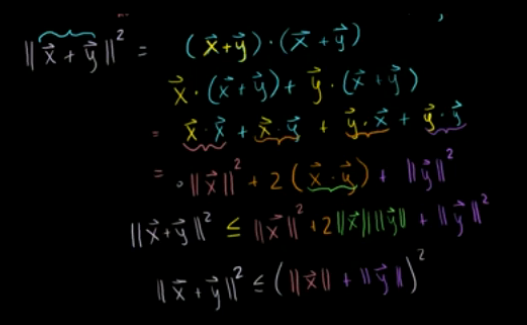 ‖x⃗ + y⃗‖² = (x⃗+y⃗)·(x⃗+y⃗)
x⃗·(x⃗+y⃗) + y⃗·(x⃗+y⃗)
= x⃗·x⃗ + x⃗·y⃗ + y⃗·x⃗ + y⃗·y⃗
= ‖x⃗‖² + 2(x⃗·y⃗) + ‖y⃗‖²
‖x⃗+y⃗‖² ≤ ‖x⃗‖² + 2‖x⃗‖‖y⃗‖ + ‖y⃗‖²
‖x⃗+y⃗‖² ≤ (‖x⃗‖ + ‖y⃗‖)²